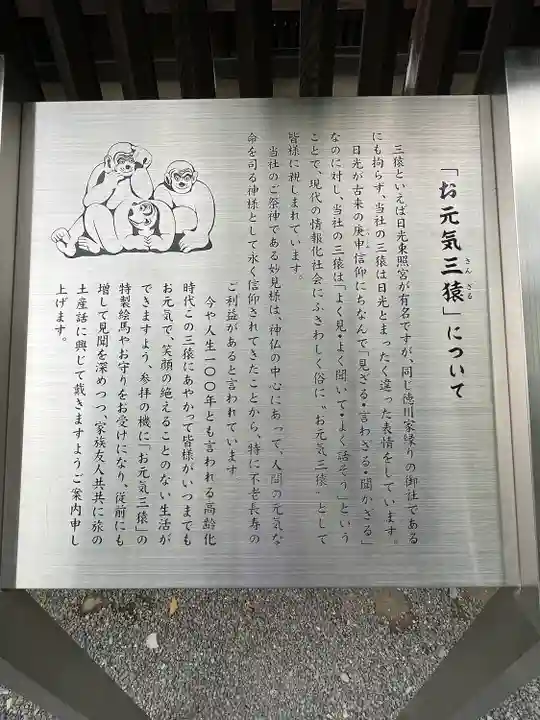 「お元気三猿」について
さんざる
三猿といえば日光東照宮が有名ですが、同じ徳川家縁りの御社である
にも拘らず、当社の三猿は日光とまったく違った表情をしています。
日光が古来の庚申信仰にちなんで「見ざる・言わざる・聞かざる」
なのに対し、当社の三猿は「よく見・よく聞いて・よく話そう」という
ことで、現代の情報化社会にふさわしく俗に〝お元気三猿〟として
皆様に親しまれています。
当社のご祭神である妙見様は、神仏の中心にあって、人間の元気な
命を司る神様として永く信仰されてきたことから、特に不老長寿の
ご利益があると言われています
今や人生一〇〇年とも言われる高齢化
時代この三猿にあやかって皆様がいつまでも
お元気で、笑顔の絶えることのない生活が
できますよう、参拝の機に「お元気三猿」の
特製絵馬やお守りをお受けになり、従前にも
増して見聞を深めつつ、家族友人共共に旅の
土産話に興じて戴きますようご案内申し
上げます。